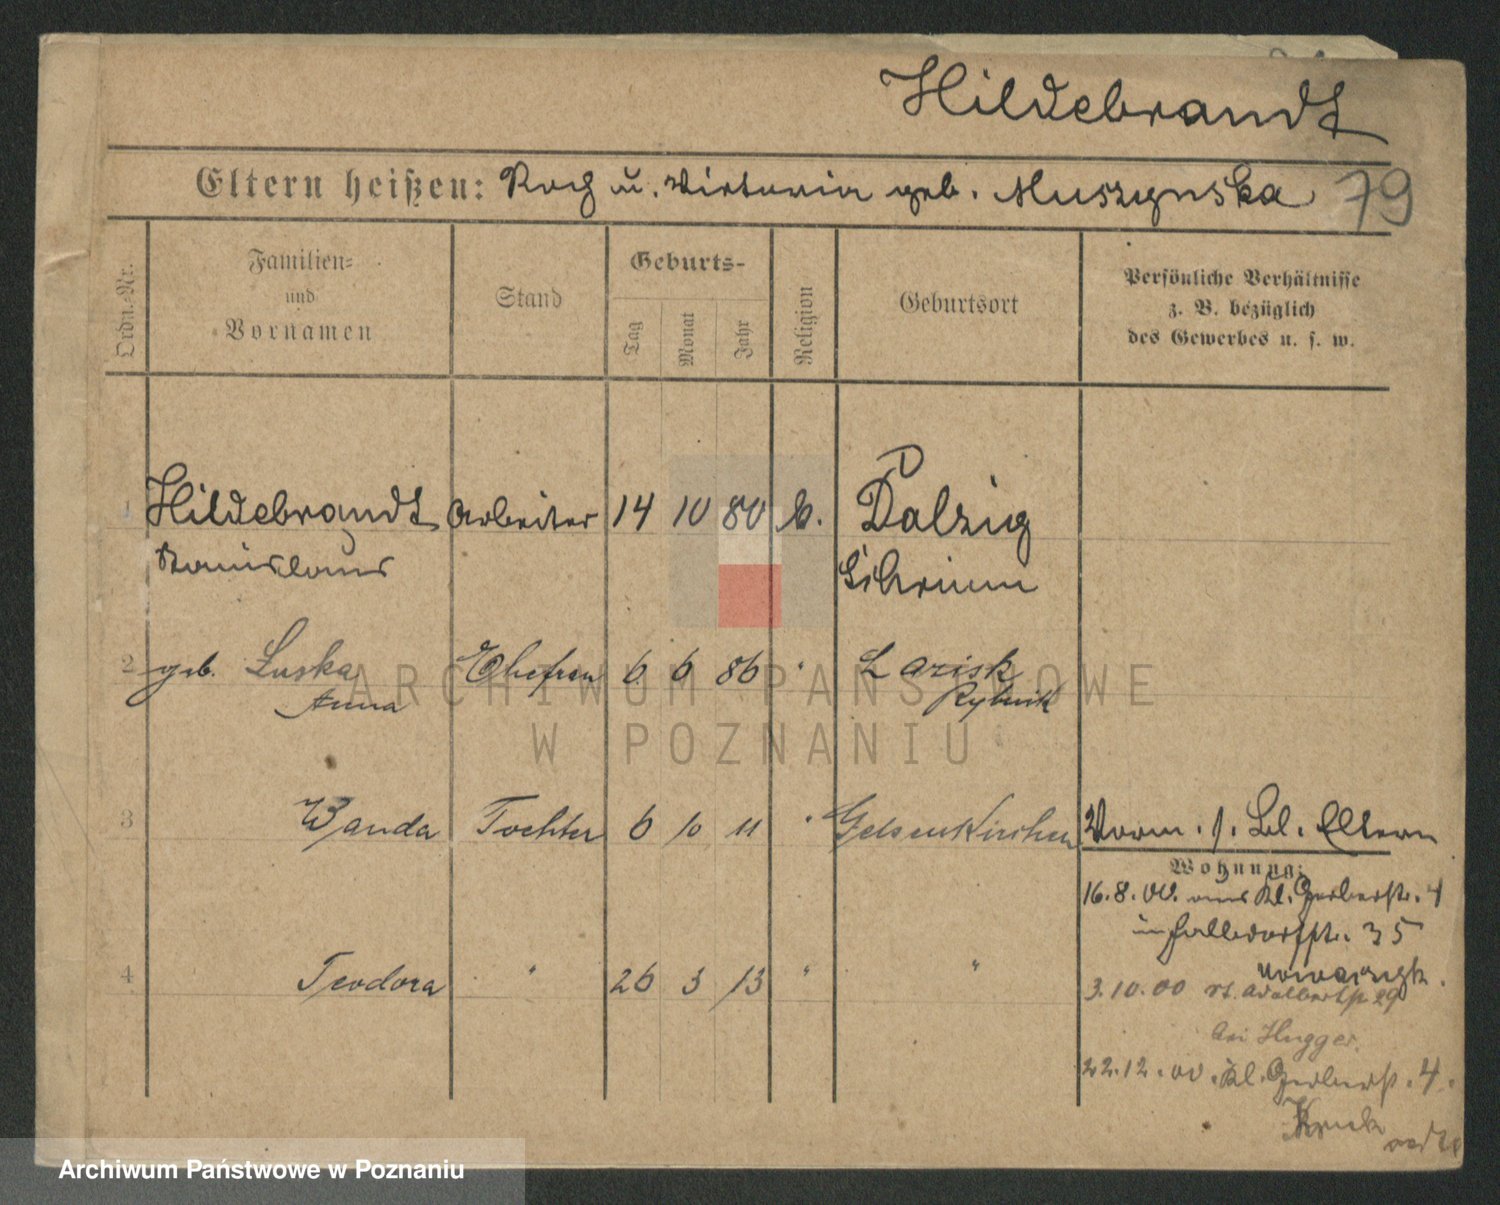 Hildebrandt
Eltern heißen: Roch u. Victoria geb. Muszynska 79
Ordn.-Nr.
Familien-
und
Vornamen
Stand
Geburts-
Tag
Monat
Jahr
Religion
Geburtsort
Persönliche Verhältnisse
z. B. bezüglich
des Gewerbes u. s. w.
1 Hildebrandt Arbeiter 14 10 80 k. Dalzig
Stanislaus Schrimm
2 geb. Luska Ehefrau 6 6 86 " Lazisk
Anna Rybnik
3 Wanda Tochter 6 10 11 " Gelsenkirchen
Vorm. s. Bl. Eltern
Wohnung:
16.8.00. aus Kl. Gerberstr. 4
in Halbdorfstr. 35
4 Teodora " 26 3 13 " "
3.10.00 St. Adalbertstr. 29
bei Hugger.
22.12.00. Kl. Gerberstr. 4.
ARCHIWUM PAŃSTWOWE
W POZNANIU
Archiwum Państwowe w Poznaniu